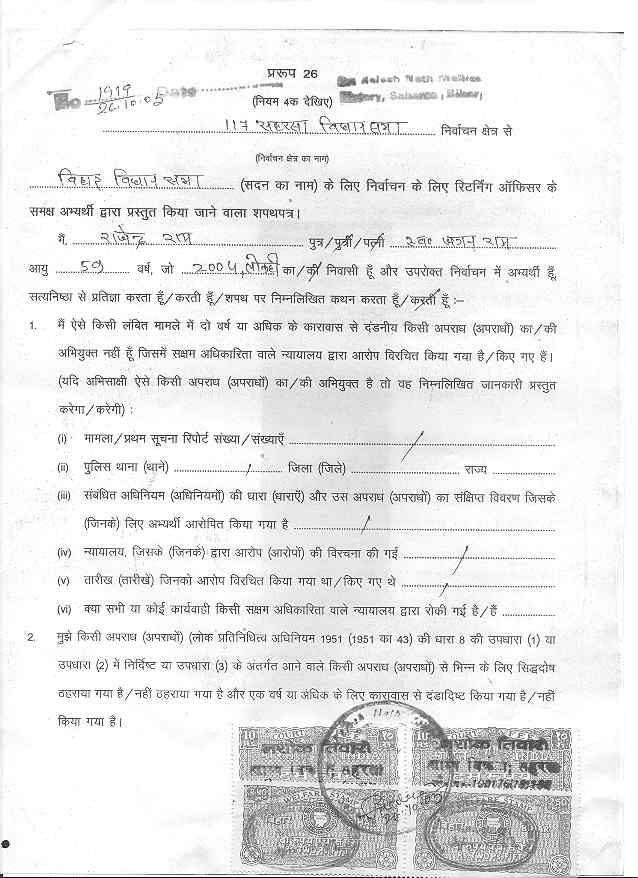 प्ररूप 26
No 1919 Date
26.10.05
(नियम 4क देखिए)
Notary, Saharsa, (Bihar)
117 सहरसा विधान सभा निर्वाचन क्षेत्र से
(निर्वाचन क्षेत्र का नाम)
बिहार विधान सभा (सदन का नाम) के लिए निर्वाचन के लिए रिटर्निंग ऑफिसर के
समक्ष अभ्यर्थी द्वारा प्रस्तुत किया जाने वाला शपथपत्र।
मैं, राजेन्द्र राम पुत्र/पुत्री/पत्नी स्व० राम
आयु 59 वर्ष, जो का/की निवासी हूँ और उपरोक्त निर्वाचन में अभ्यर्थी हूँ,
सत्यनिष्ठा से प्रतिज्ञा करता हूँ/करती हूँ/शपथ पर निम्नलिखित कथन करता हूँ/करती हूँ :–
1. मैं ऐसे किसी लंबित मामले में दो वर्ष या अधिक के कारावास से दंडनीय किसी अपराध (अपराधों) का/की
अभियुक्त नहीं हूँ, जिसमें सक्षम अधिकारिता वाले न्यायालय द्वारा आरोप विरचित किया गया है/किए गए हैं।
(यदि अभिसाक्षी ऐसे किसी अपराध (अपराधों) का/की अभियुक्त है तो वह निम्नलिखित जानकारी प्रस्तुत
करेगा/करेगी) :
(i) मामला/प्रथम सूचना रिपोर्ट संख्या/संख्याएँ
(ii) पुलिस थाना (थाने) जिला (जिले) राज्य
(iii) संबंधित अधिनियम (अधिनियमों) की धारा (धाराएँ) और उस अपराध (अपराधों) का संक्षिप्त विवरण जिसके
(जिनके) लिए अभ्यर्थी आरोपित किया गया है
(iv) न्यायालय, जिसके (जिनके) द्वारा आरोप (आरोपों) की विरचना की गई
(v) तारीख (तारीखें) जिनको आरोप विरचित किया गया था/किए गए थे
(vi) क्या सभी या कोई कार्यवाही किसी सक्षम अधिकारिता वाले न्यायालय द्वारा रोकी गई है/हैं
2. मुझे किसी अपराध (अपराधों) (लोक प्रतिनिधित्व अधिनियम 1951 (1951 का 43) की धारा 8 की उपधारा (1) या
उपधारा (2) में निर्दिष्ट या उपधारा (3) के अंतर्गत आने वाले किसी अपराध (अपराधों) से भिन्न के लिए सिद्धदोष
ठहराया गया है/नहीं ठहराया गया है और एक वर्ष या अधिक के लिए कारावास से दंडादिष्ट किया गया है/नहीं
किया गया है।
अशोक तिवारी अशोक तिवारी
WELFARE STAMP WELFARE STAMP